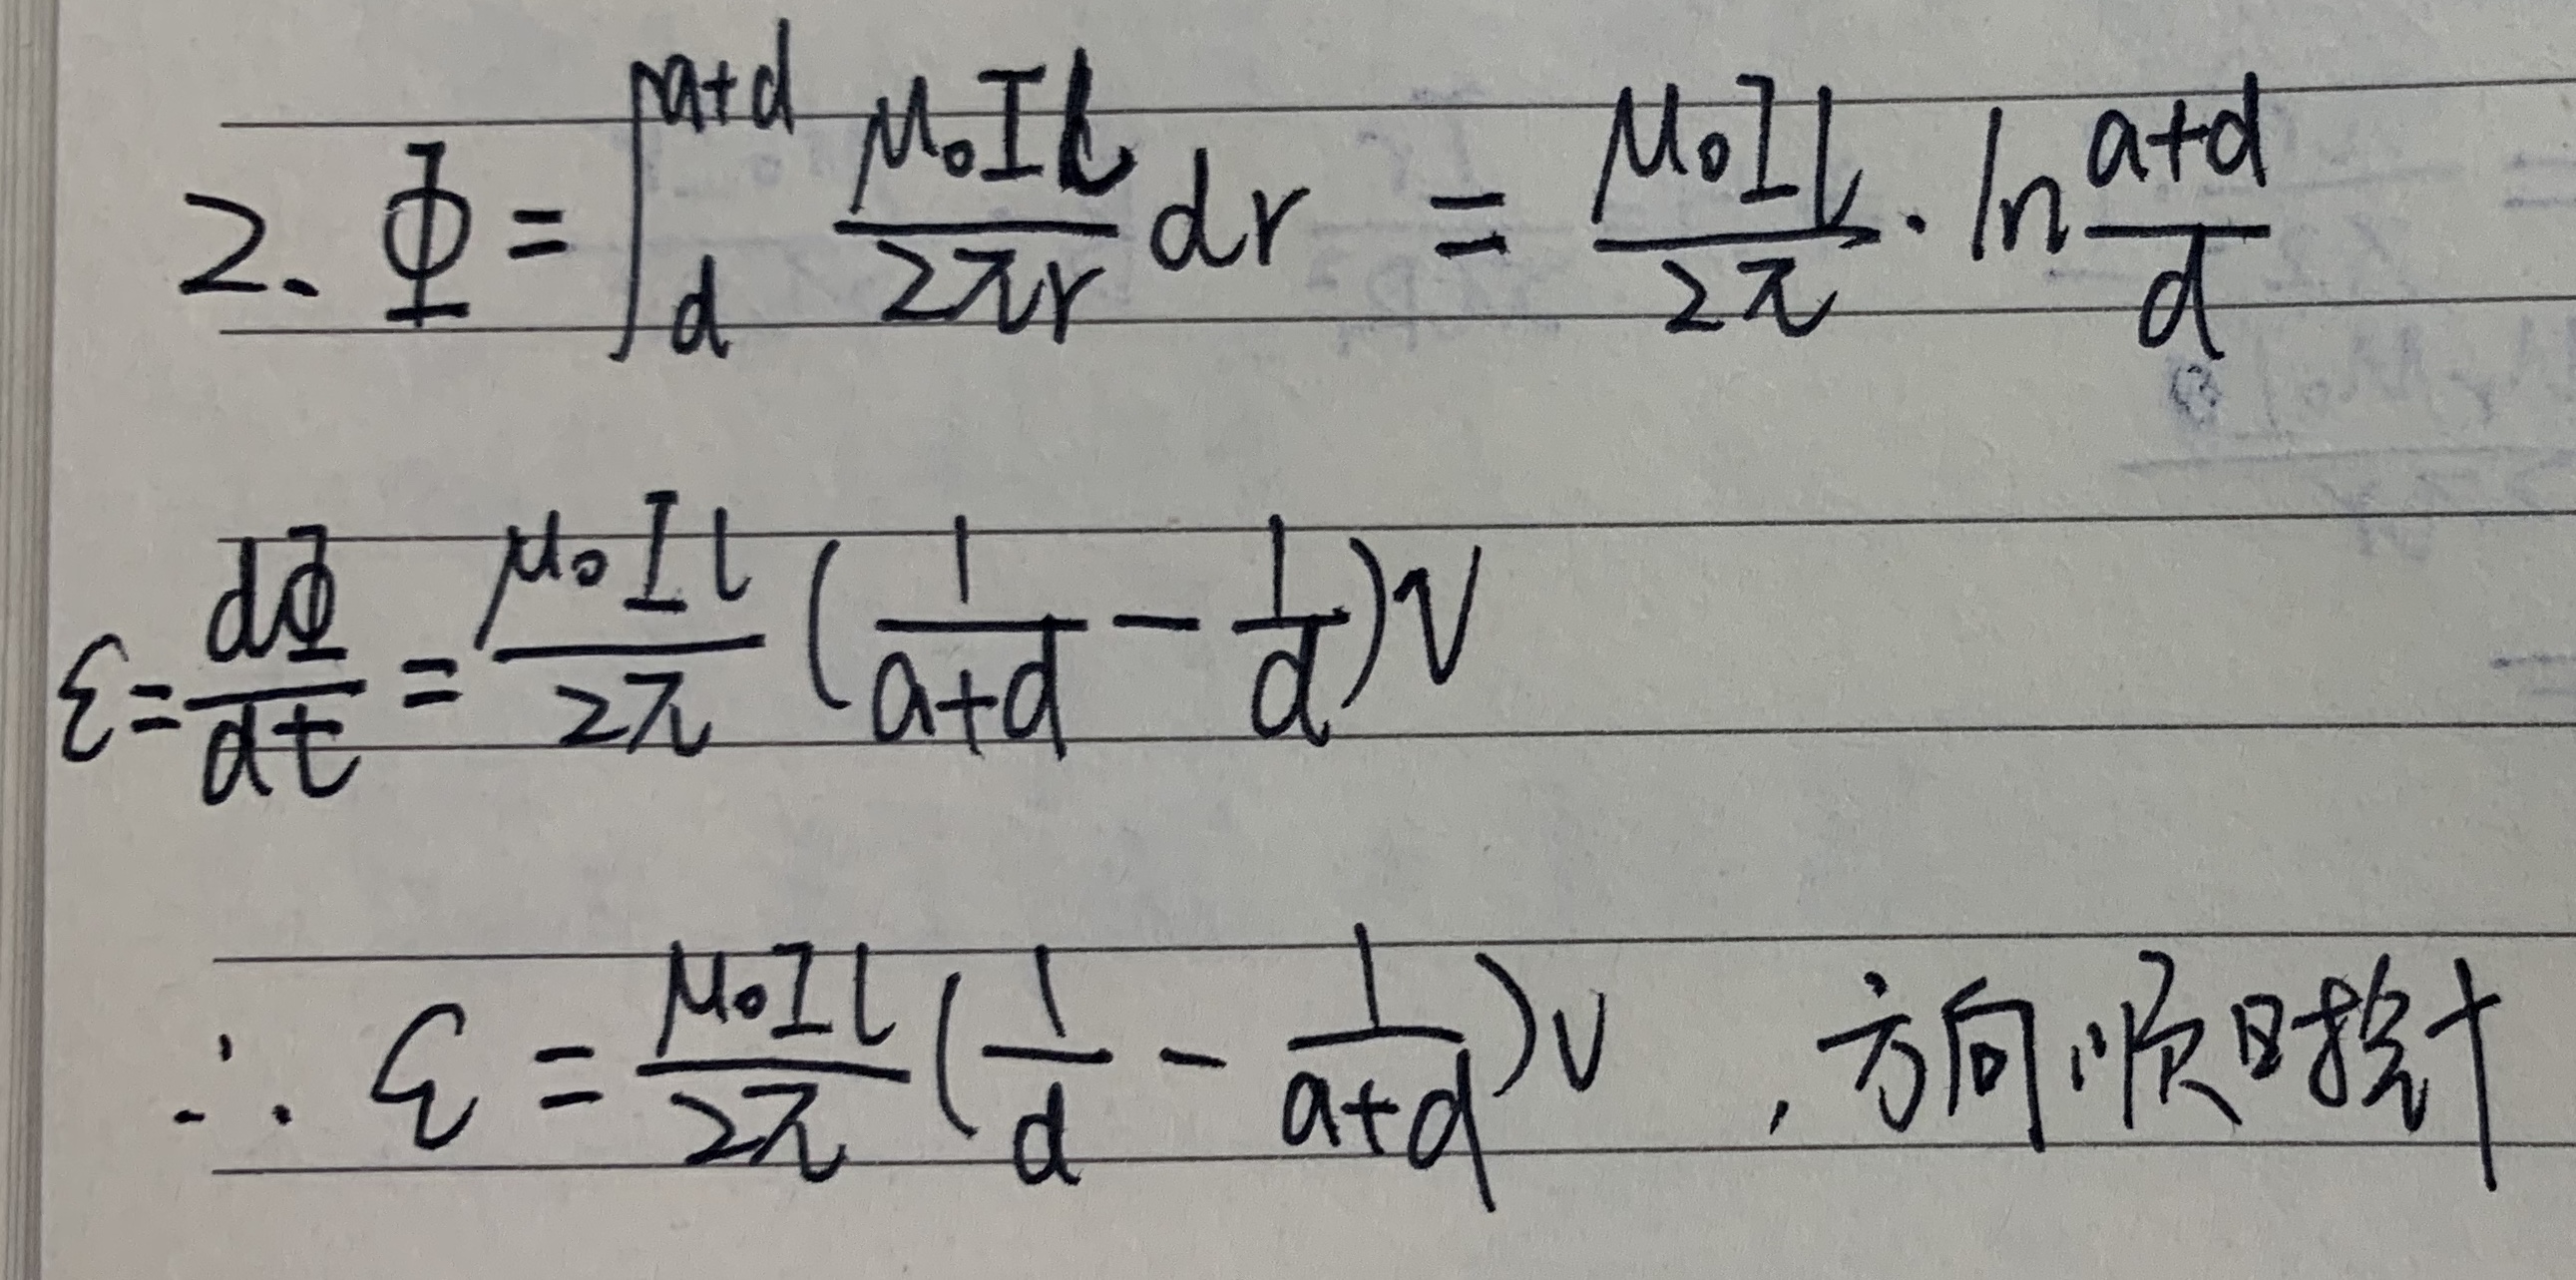 2、Φ = ∫_d^{a+d} \frac{μ₀Il}{2πr} dr = \frac{μ₀Il}{2π} · ln\frac{a+d}{d}
ε = \frac{dΦ}{dt} = \frac{μ₀Il}{2π} (\frac{1}{a+d} - \frac{1}{d})v
∴ ε = \frac{μ₀Il}{2π} (\frac{1}{d} - \frac{1}{a+d})v ,方向顺时针